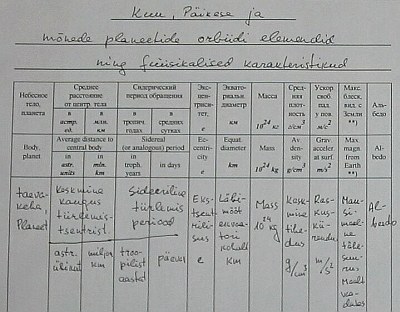 Kuu, Päikese ja
mõnede planeetide orbiidi elemendid
ning füüsikalised karakteristikud
Небесное тело, планета
Среднее расстояние от центр. тела
в астр. ед.
в млн. км
Сидерический период обращения
в тропич. годах
в средних сутках
Экс-цен-триси-тет, e
Эквато-риальн. диаметр км
Масса 10²⁴ кг
Сред-няя плот-ность г/см³
Уско-р своб пад у пов м/с²
Макс. блеск, вид. с Земли **)
Аль-бедо
Body, planet
Average distance to central body
in astr. units
in mln. km
Sidereal (or analogous) period
in troph. years
in days
Ec-centri-city e
Equat diameter km
Mass 10²⁴ kg
Av den-sity g/cm³
Grav acceler at surf. m/s²
Max magn from Earth **)
Al-bedo
taeva-keha, Planeet
keskmine kaugus tiirlemis-tsentrist.
astr. ühikut
miljon km
sideeriline tiirlemis periood
troo-pilist aastat
päeva
Eks-tsent-rilisus e
Läbi-mõõt ekvaa-tori kohalt km
Mass 10²⁴ kg
Kesk-mine tihe-dus g/cm³
Ras-kus-kii-rendus m/s²
Mak-si-maal-ne tähe-suu-rus Maalt vaa-dates
Al-beedo